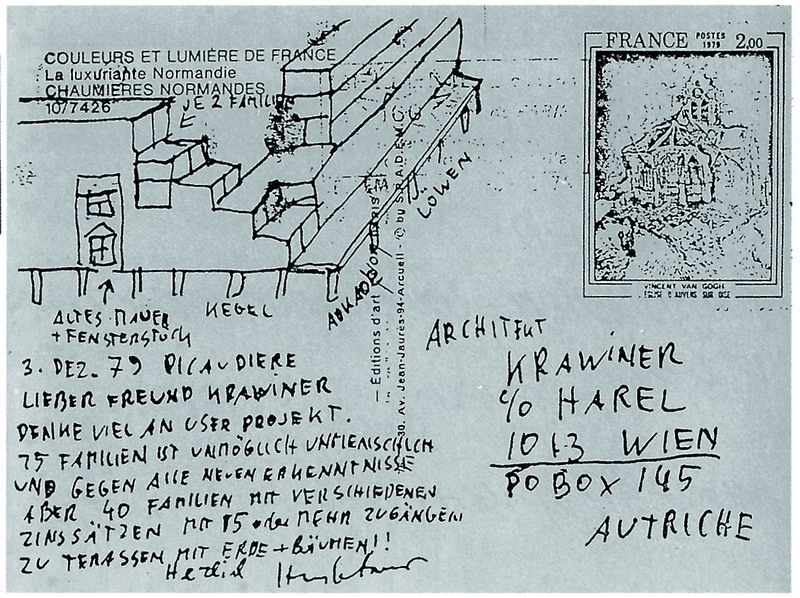 COULEURS ET LUMIÈRE DE FRANCE
La luxuriante Normandie
CHAUMIÈRES NORMANDES
10/7426
JE 2 FAMILIEN
FRANCE POSTES 1979 2,00
VINCENT VAN GOGH
EGLISE D'AUVERS SUR OISE
LÖWEN
ARKADEN
KEGEL
ALTES MAUER
+ FENSTERSTÜCK
Editions d'art
30, Av. Jean-Jaurès-94-Arcueil - © by S.P.A.D.E.M.
3. DEZ. 79 PICAUDIERE
LIEBER FREUND KRAWINER
DENKE VIEL AN USER PROJEKT.
75 FAMILIEN IST UNMÖGLICH UNMENSCHLICH
UND GEGEN ALLE NEUEN ERKENNTNISSE
ABER 40 FAMILIEN MIT VERSCHIEDENEN
ZINSSÄTZEN MIT 15 oder MEHR ZUGÄNGEN
ZU TERASSEN MIT ERDE + BÄUMEN!!
Herzlich
ARCHITEKT
KRAWINER
c/o HAREL
1013 WIEN
PO BOX 145
AUTRICHE